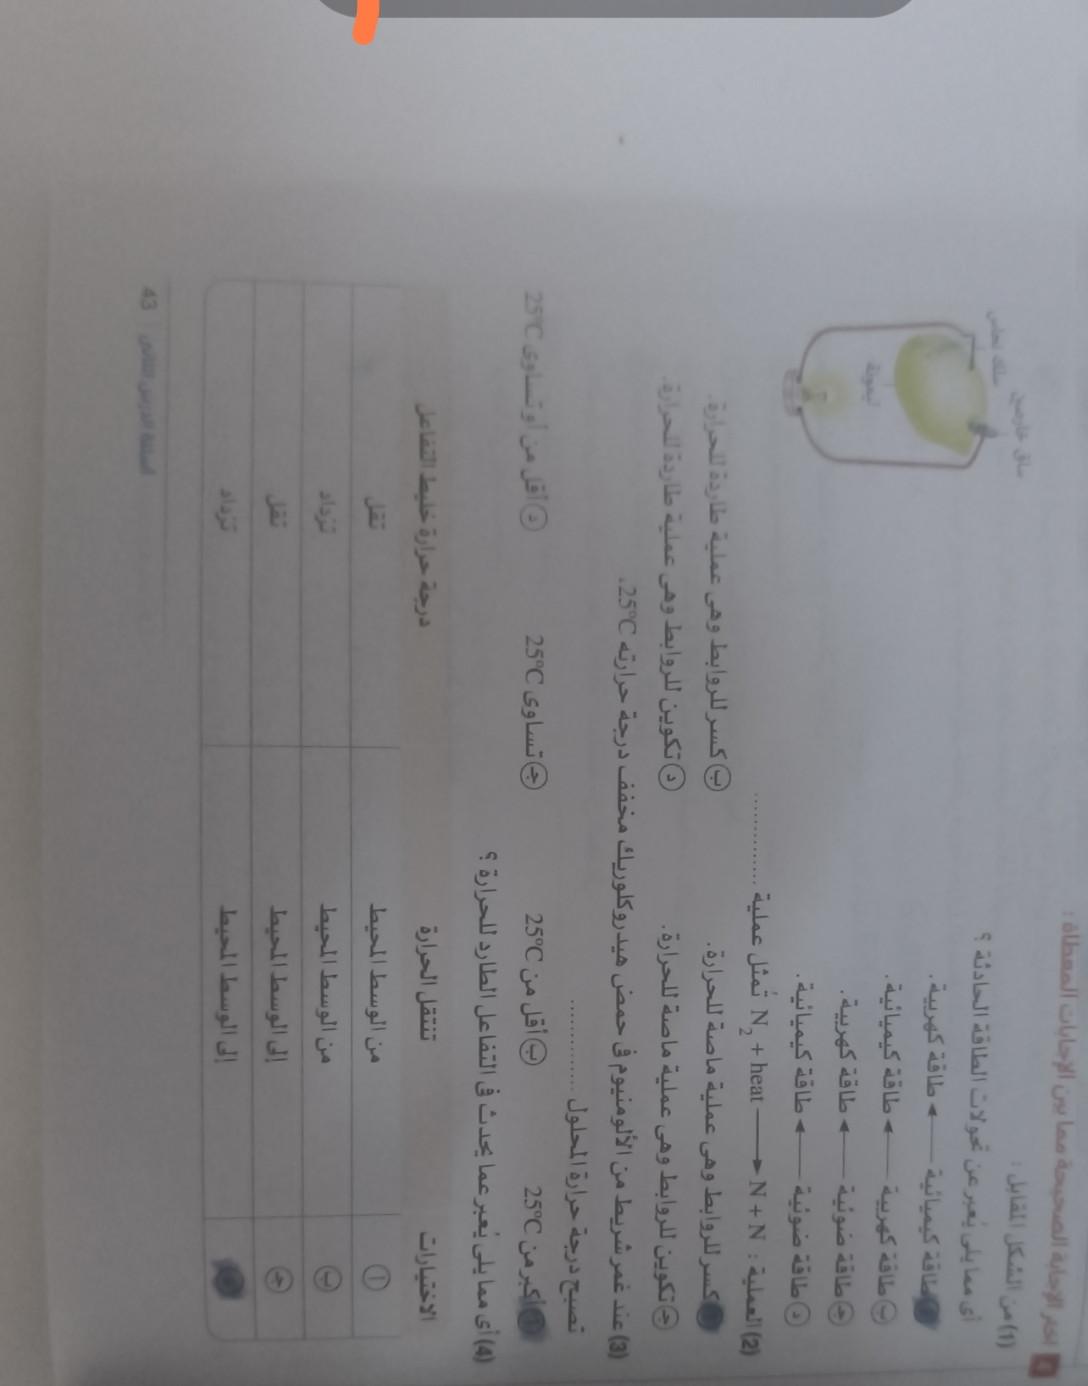 4 اختر الإجابة الصحيحة مما بين الإجابات المعطاة :
(1) من الشكل المقابل :
أى مما يلى يُعبر عن تحولات الطاقة الحادثة ؟
طاقة كيميائية ← طاقة كهربية.
ب طاقة كهربية ← طاقة كيميائية.
ج طاقة ضوئية ← طاقة كهربية.
د طاقة ضوئية ← طاقة كيميائية.
ساق خارصين
سلك نحاس
ليمونة
(2) العملية : N₂ + heat → N + N تُمثل عملية ............
كسر للروابط وهى عملية ماصة للحرارة. ب كسر للروابط وهى عملية طاردة للحرارة.
ج تكوين للروابط وهى عملية ماصة للحرارة. د تكوين للروابط وهى عملية طاردة للحرارة.
(3) عند غمر شريط من الألومنيوم فى حمض هيدروكلوريك مخفف درجة حرارته 25°C.
تصبح درجة حرارة المحلول ............
أ أكبر من 25°C ب أقل من 25°C ج تساوى 25°C د أقل من أو تساوى 25°C
(4) أى مما يلى يُعبر عما يحدث فى التفاعل الطارد للحرارة ؟
الاختيارات تنتقل الحرارة درجة حرارة خليط التفاعل
أ من الوسط المحيط تقل
ب من الوسط المحيط تزداد
ج إلى الوسط المحيط تقل
إلى الوسط المحيط تزداد
أسئلة الدرس الثانى 43